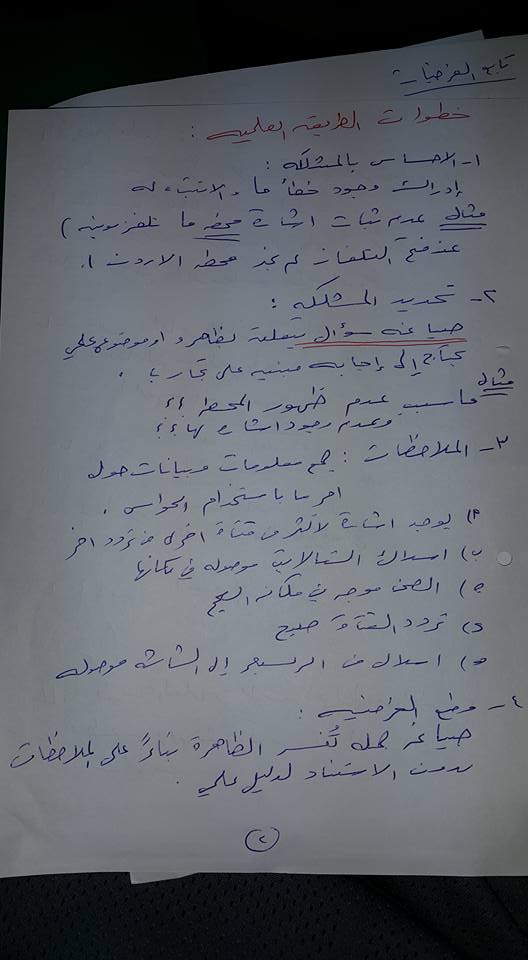 تابع الفرضيات
خطوات الطريقه العلميه :
١- الاحساس بالمشكله :
إدراك وجود خطأ ما والانتباه له
مثال عدم ثبات اشارة محطه ما تلفزيونيه )
عند فتح التلفاز لم نجد محطه الاردن ).
٢- تحديد المشكله :
صياغه سؤال يتعلق بظاهره او موضوع علمي
يحتاج إلى إجابه مبنيه على تجارب .
مثال ما سبب عدم ظهور المحطه ؟؟
وعدم وجود اشاره لها ؟؟
٣- الملاحظات : جمع معلومات وبيانات حول
امر ما باستخدام الحواس .
أ) يوجد اشارة لأكثر من قناة اخرى من تردد اخر
ب) اسلاك الستالايت موصوله في مكانها
ج) الصحن موجه في مكانه الصحيح
د) تردد القناة صحيح
ه) اسلاك من الرسيفر إلى الشاشه موصوله
٤- وضع الفرضيه :
صياغه جمله تُفسر الظاهرة بناءً على الملاحظات
بدون الاستناد لدليل علمي .
٢